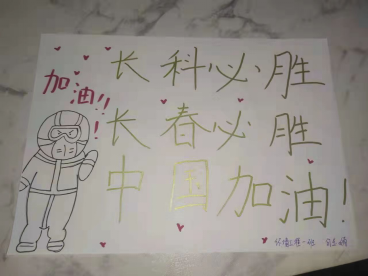 长科必胜
加油!!!
长春必胜
中国加油!